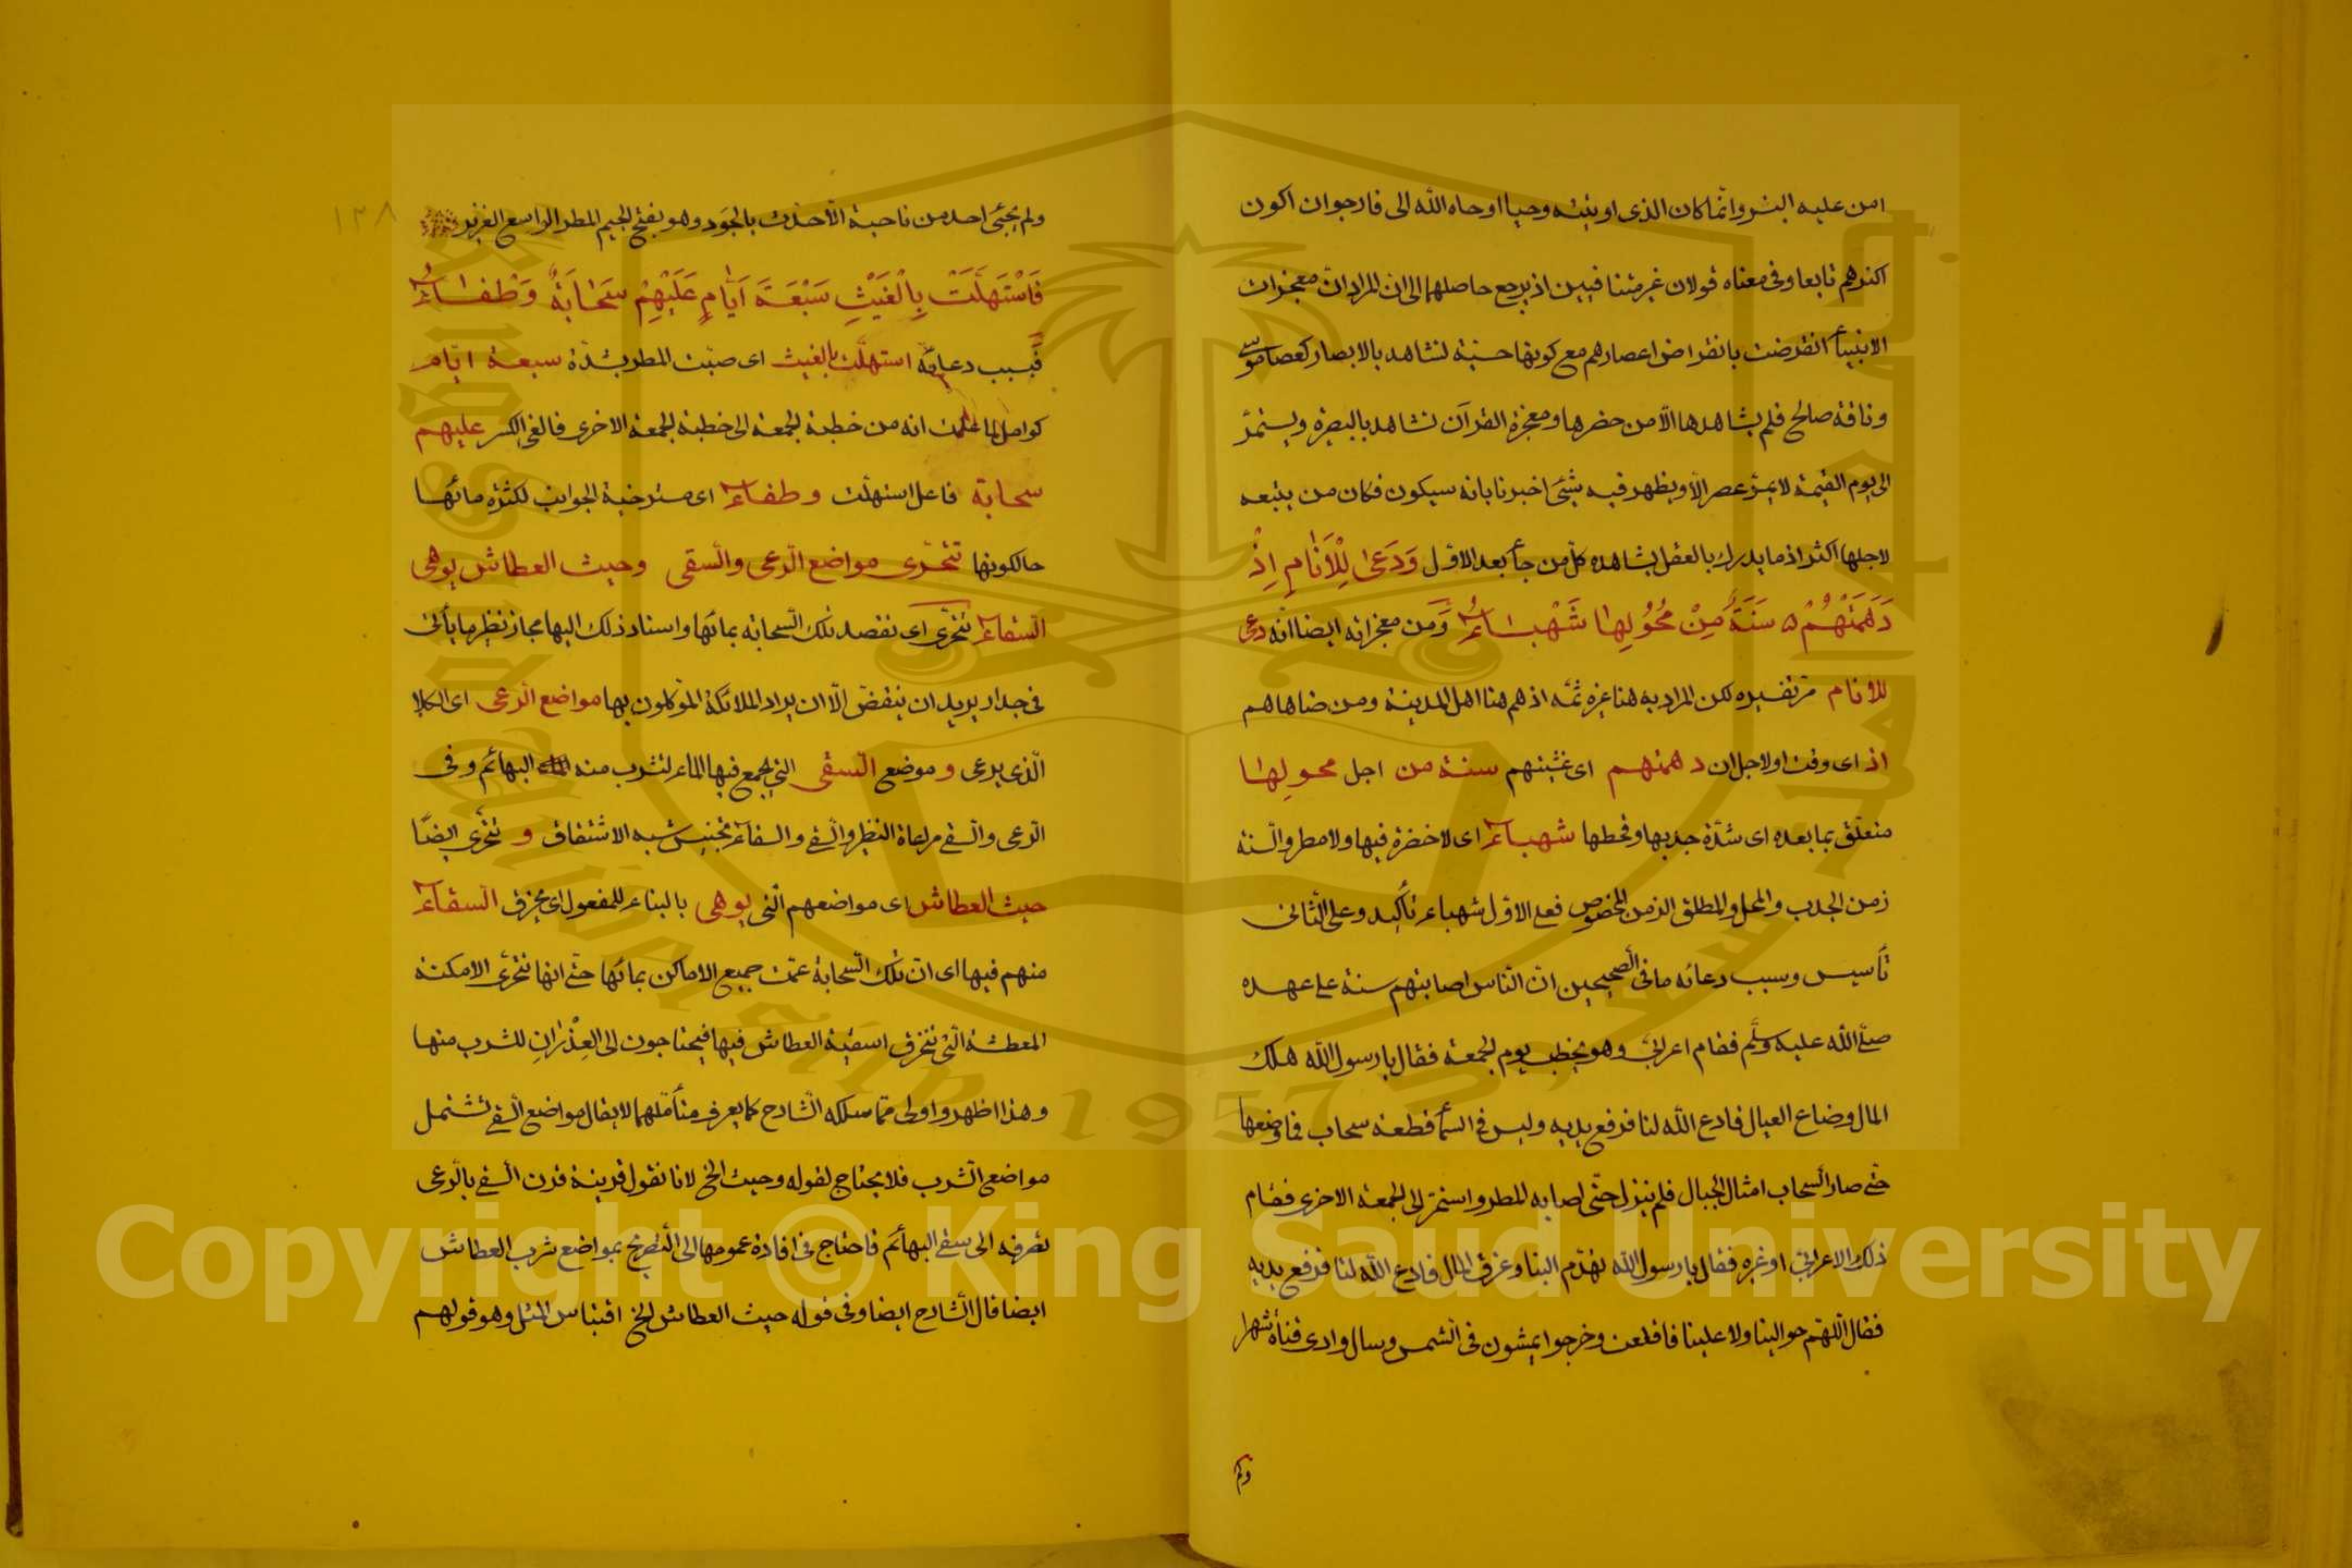 امن عليه البشر وانما كان الذى اوتيته وحيا اوحاه الله الى فارجوان اكون
اكثرهم تابعا وفى معناه قولان غير متنافيين اذ يرجع حاصلهما الى ان المراد ان معجزات
الانبيأ انقرضت بانقراض اعصارهم مع كونها حسية تشاهد بالابصار كعصا موسى
وناقة صالح فلم يشاهدها الّا من حضرها ومعجزة القرآن تشاهد بالبصيرة ويستمرّ
الى يوم القيمة لا يمرّ عصر الّا ويظهر فيه شيئ اخبرنا بانه سيكون فكان من يتبعه
لاجلها اكثر اذ ما يدرك بالعقل يشاهده كلّ من جأ بعد الاوّل وَدَعىٰ لِلْاَنٰامِ اِذْ
دَهَمَتْهُمْ ۵ سَنَةٌ مِنْ مُحُولِهٰا شَهْبٰاءُ وَمن معجزاته ايضا انّه دعى
للانام مرّ تفسيره لكن المراد به هنا غيره ثمّه اذ هم هنا اهل المدينة ومن ضاهاهم
اذ اى وقت او لاجل ان دهمتهم اى غشيتهم سنة من اجل محولِهٰا
متعلّق بما بعده اى شدّة جدبها وقحطها شهباء اى لا خضرة فيها ولا مطر والّسنة
زمن الجدب والمحل والمطلق الزمن المخصوص فعلى الاوّل شهباء تأكيد وعلى الثّانى
تأسيس وسبب دعائه ما فى الصحيحين انّ النّاس اصابتهم سنة على عهده
صلّى الله عليه وسلّم فقام اعرابىّ وهو يخطب يوم الجمعة فقال يا رسول الله هلك
المال وضاع العيال فادع الله لنا فرفع يديه وليس فى السمأ قطعة سحاب فما وضعها
حتّى صار السّحاب امثال الجبال فلم ينزل حتّى اصابه المطر واستمرّ الى الجمعة الاخرى فقام
ذلك الاعرابىّ او غيره فقال يا رسول الله تهدّم البنا وغرق المال فادع الله لنا فرفع يديه
فقال اللّهمّ حوالينا ولا علينا فاقلعت وخرجوا يمشون فى الشّمس وسال وادى قناة شهرا
ولم
١٢٨
ولم يجئ احد من ناحية الّا حدّث بالجَود وهو بفتح الجيم المطر الواسع الغزير
فَاسْتَهَلَّتْ بِالْغَيْثِ سَبْعَةَ اَيّٰامٍ عَلَيْهِمْ سَحٰابَةٌ وَطْفٰاءُ
فَبسبب دعائه استهلّت بالغيث اى صبّت المطر بشدّة سبعة ايّام
كوامل لما علمت انه من خطبة الجمعة الى خطبة الجمعة الاخرى فالغى الكسر عليهم
سحابة فاعل استهلّت وطفاء اى مسترخية الجوانب لكثرة مائها
حالكونها تتحرّى مواضع الّرعى والّسقى وحيث العطاش يوهى
السّقاء تتحرّى اى تقصد تلك السّحابة بمائها واسناد ذلك اليها مجاز نظير ما يأتى
فى جدار يريد ان ينقضّ الّا ان يراد الملائكة الموّكلون بها مواضع الّرعى اى الكلا
الّذى يرعى و موضع الّسقى التى يجمع فيها الماء لتشرب منه البهائم وفى
الّرعى والّسقى مراعاة النظير والّسقى والسقاء تجنيس شبه الاشتقاق و تتحرّى ايضًا
حيث العطاش اى مواضعهم الّتى يوهى بالبناء للمفعول اى يخرق السّقاء
منهم فيها اى انّ تلك السّحابة عمّت جميع الاماكن بمائها حتّى انها تتحرّى الامكنة
المعطشة الّتى تنخرق اسقية العطاش فيها فيحتاجون الى الغِدْرٰانِ للشرب منها
وهذا اظهر واولى ممّا سلكه الشّارح كما يعرف متأمّلهما لا يقال مواضع الّسقى تشتمل
مواضع الشّرب فلا يحتاج لقوله وحيث الخ لانا نقول قرينة قرن الّسقى بالّرعى
تصرفه الى سقى البهائم فاحتاج فى افادة عمومها الى التّصريح بمواضع شرب العطاش
ايضا قال الشّارح ايضا وفى قوله حيث العطاش الخ اقتباس المثل وهو قولهم
Copyright © King Saud University
King Saud University
1957